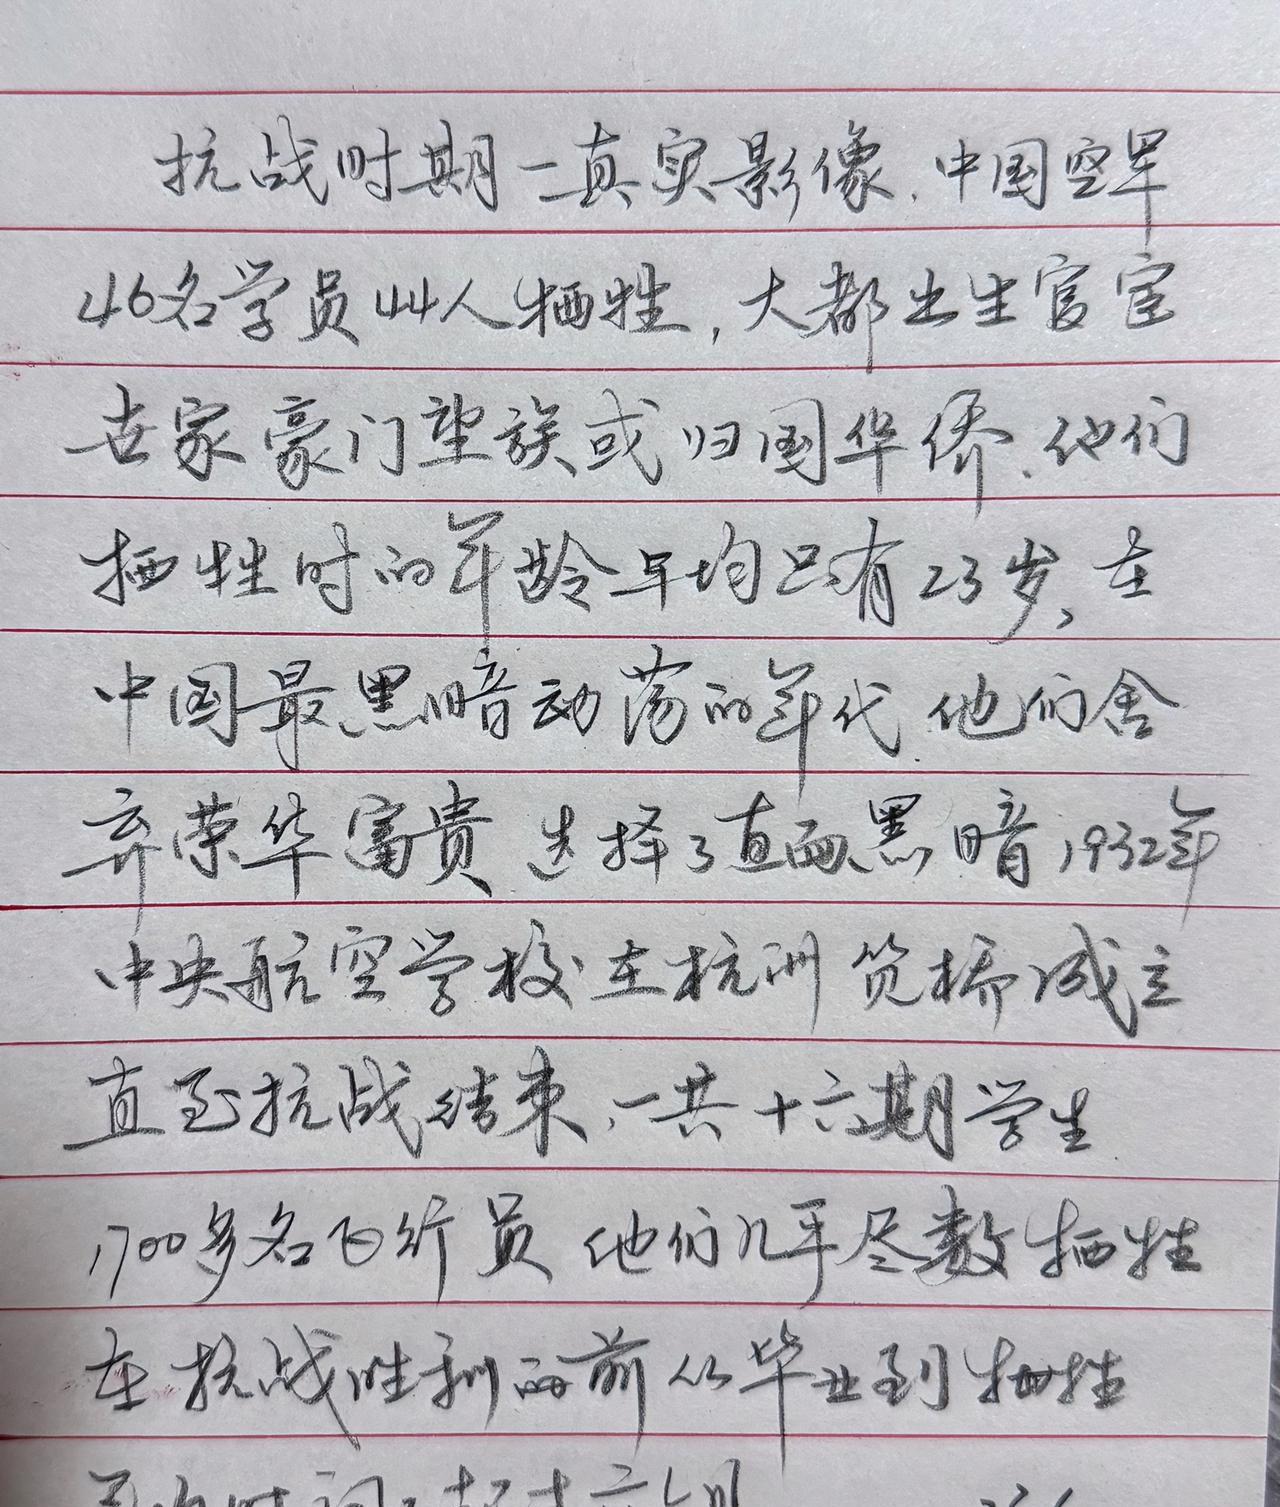 抗战时期一真实影像.中国空军
46名学员44人牺牲,大都出生官宦
世家豪门望族或归国华侨.他们
牺牲时的年龄平均只有23岁,在
中国最黑暗动荡的年代.他们舍
弃荣华富贵 选择了直面黑暗,1932年
中央航空学校在杭州笕桥成立
直至抗战结束,一共十六期学生
1700多名飞行员 他们几乎尽数牺牲
在抗战胜利的前从毕业到牺牲